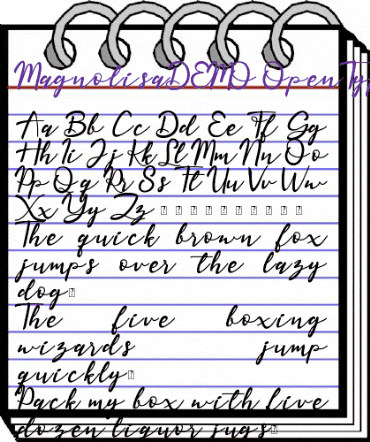 MagnolisaDEMO OpenTy
Aa Bb Cc Dd Ee Ff Gg
Hh Ii Jj Kk Ll Mm Nn Oo
Pp Qq Rr Ss Tt Uu Vv Ww
Xx Yy Zz
The quick brown fox
jumps over the lazy
dog
The five boxing
wizards jump
quickly
Pack my box with five
dozen liquor jugs